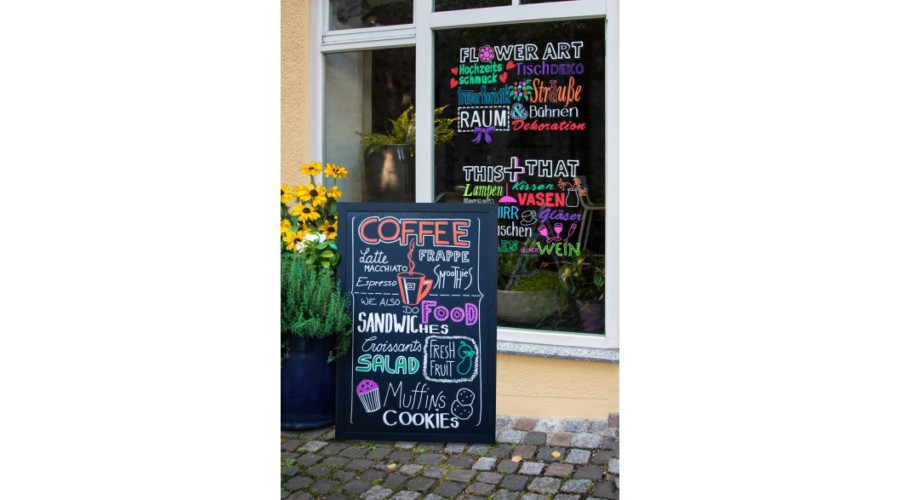 FLOWER ART
Hochzeits
schmuck
TischDEKO
Trauerfloristik
Sträuße
RAUM & Bühnen
Dekoration
THIS+THAT
Lampen
Kissen
VASEN
Gläser
WEIN
COFFEE
Latte
MACCHIATO
FRAPPE
Espresso
SMOOTHIES
WE ALSO
DO
FOOD
SANDWICHES
Croissants
SALAD
FRESH
FRUIT
Muffins
COOKIES